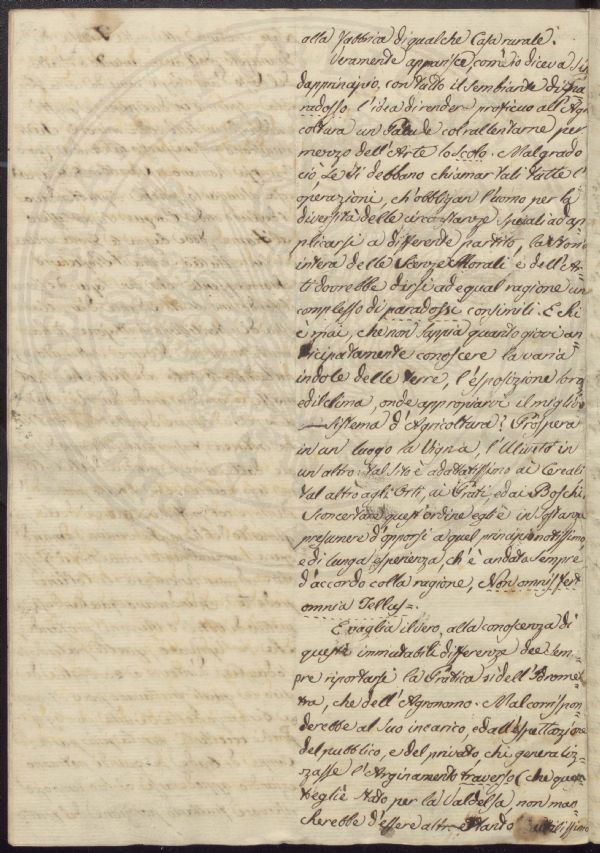 alla Fabbrica di qualche Casa rurale.
Veramente apparisce, com'io diceva sin
dapprincipio, con tutto il sembiante di Pa=
radosso l'idea di render proficuo all'Agri
coltura un Palude col rallentarne per
mezzo dell'Arte lo Scolo. Malgrado
ciò se si debbano chiamar tali tutte l'
operazioni, ch'obbligan l'uomo per la
diversità delle circostanze speciali ad ap=
plicarsi a differente partito, la
intera delle Scienze Morali e dell'Ar=
ti dovrebbe dirsi ad equal ragione un
complesso di paradossi consimili. E chi
è mai, che non sappia quanto giovi an=
ticipatamente conoscere la varia
indole delle terre, l'esposizione loro
ed il clima, onde appropiarvi il miglior
sistema d'Agricoltura? Prospera
in un luogo la Vigna, l'Uliveto in
un altro: tal Sito è adattatissimo ai Cereali
tal altro agli Orti, ai Prati, ed ai Boschi.
Sconcertare quest'ordine egli è in sostanza
presumere d'opporsi a qual principio notissimo,
e di lunga esperienza, ch'è andato sempre
d'accordo colla ragione, Non omnis fert
omnia Tellus=.
E vaglia il vero, alla conoscenza di
queste immutabili differenze dee sem=
pre riportarsi la Pratica sì dell'Idrome=
tra, che dell'Agronomo. Mal corrispon
derebbe al suo incarico, ed all'espettazione
del pubblico, e del privato chi generaliz=
zasse l'Arginamento traverso (che quan=
t'egli è Nato per la Valdelsa, non man=
cherebbe d'essere altrettanto utilissimo